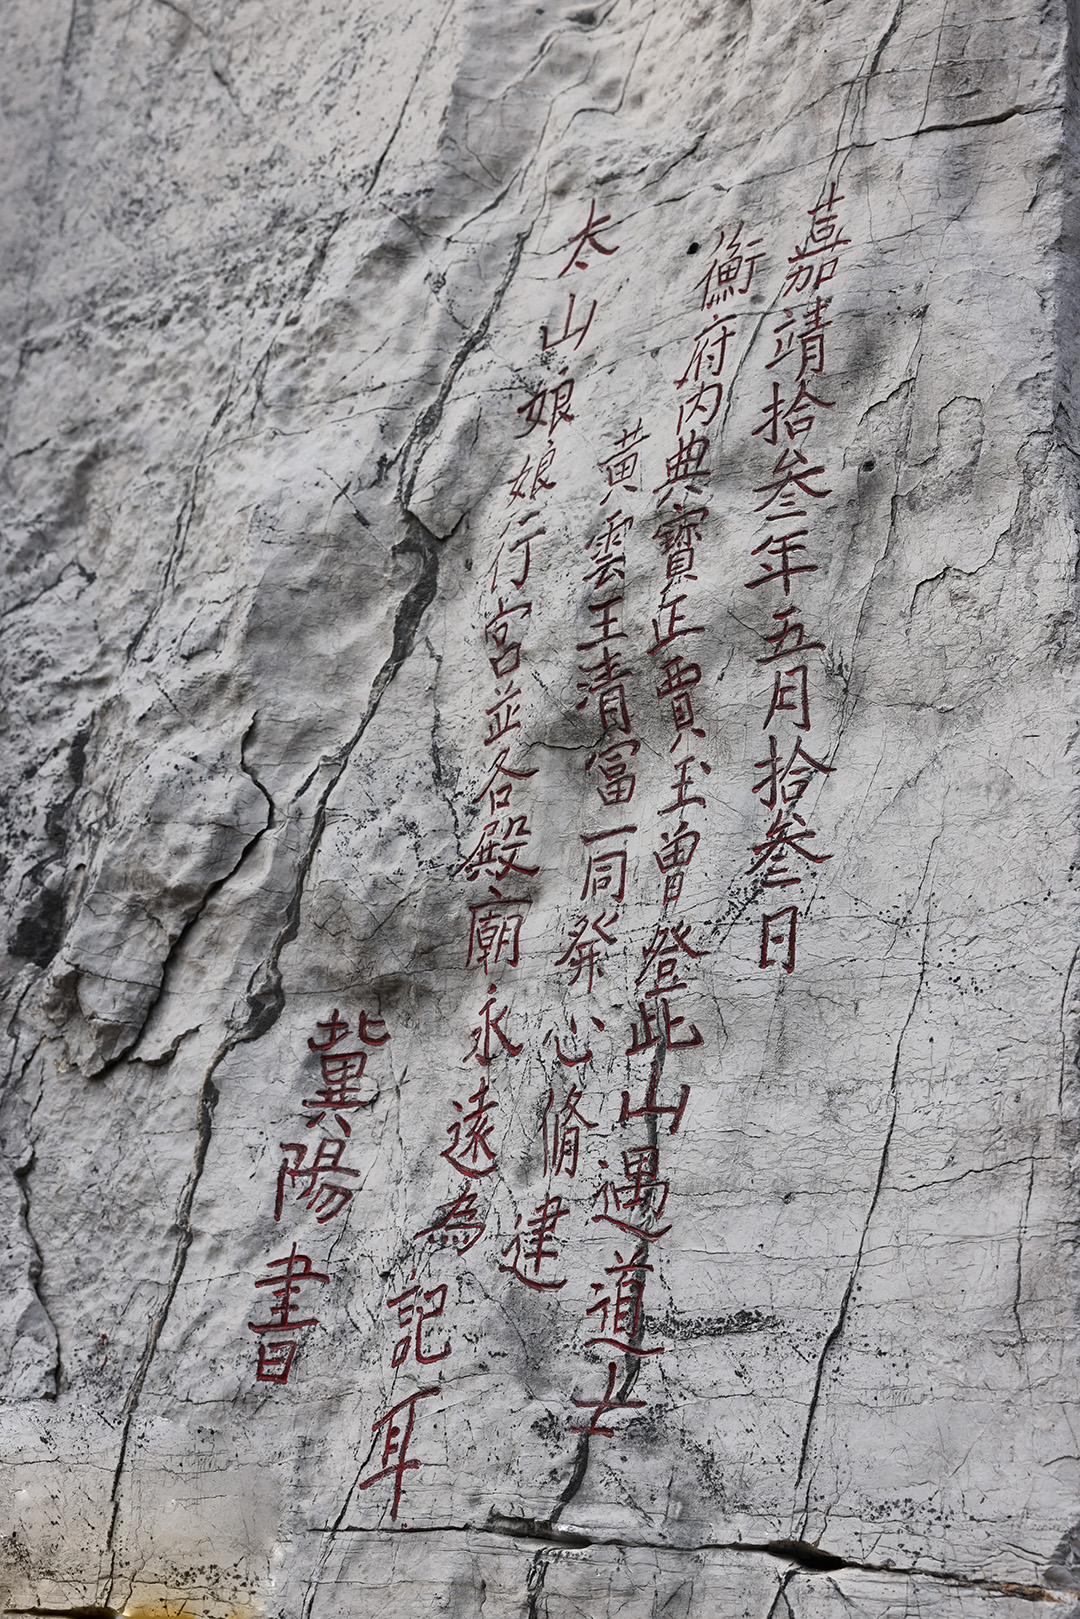 嘉靖拾叁年五月拾叁日
衡府内典寳正賈玉曽登此山遇道士
黄雲王清富一同發心脩建
泰山娘娘行宫並各殿廟永遠為記耳
冀陽書